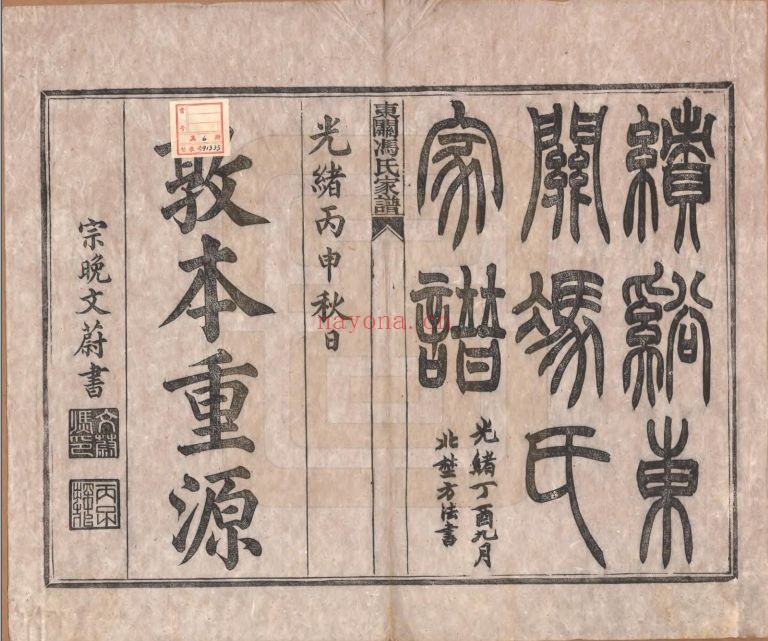 績谿東
關馮氏
家譜
光緒丁酉九月
北埜方法書
東關馮氏家譜
光緒丙申秋日
敦本重源
宗晚文蔚書
文蔚
馮印
nayona.cn